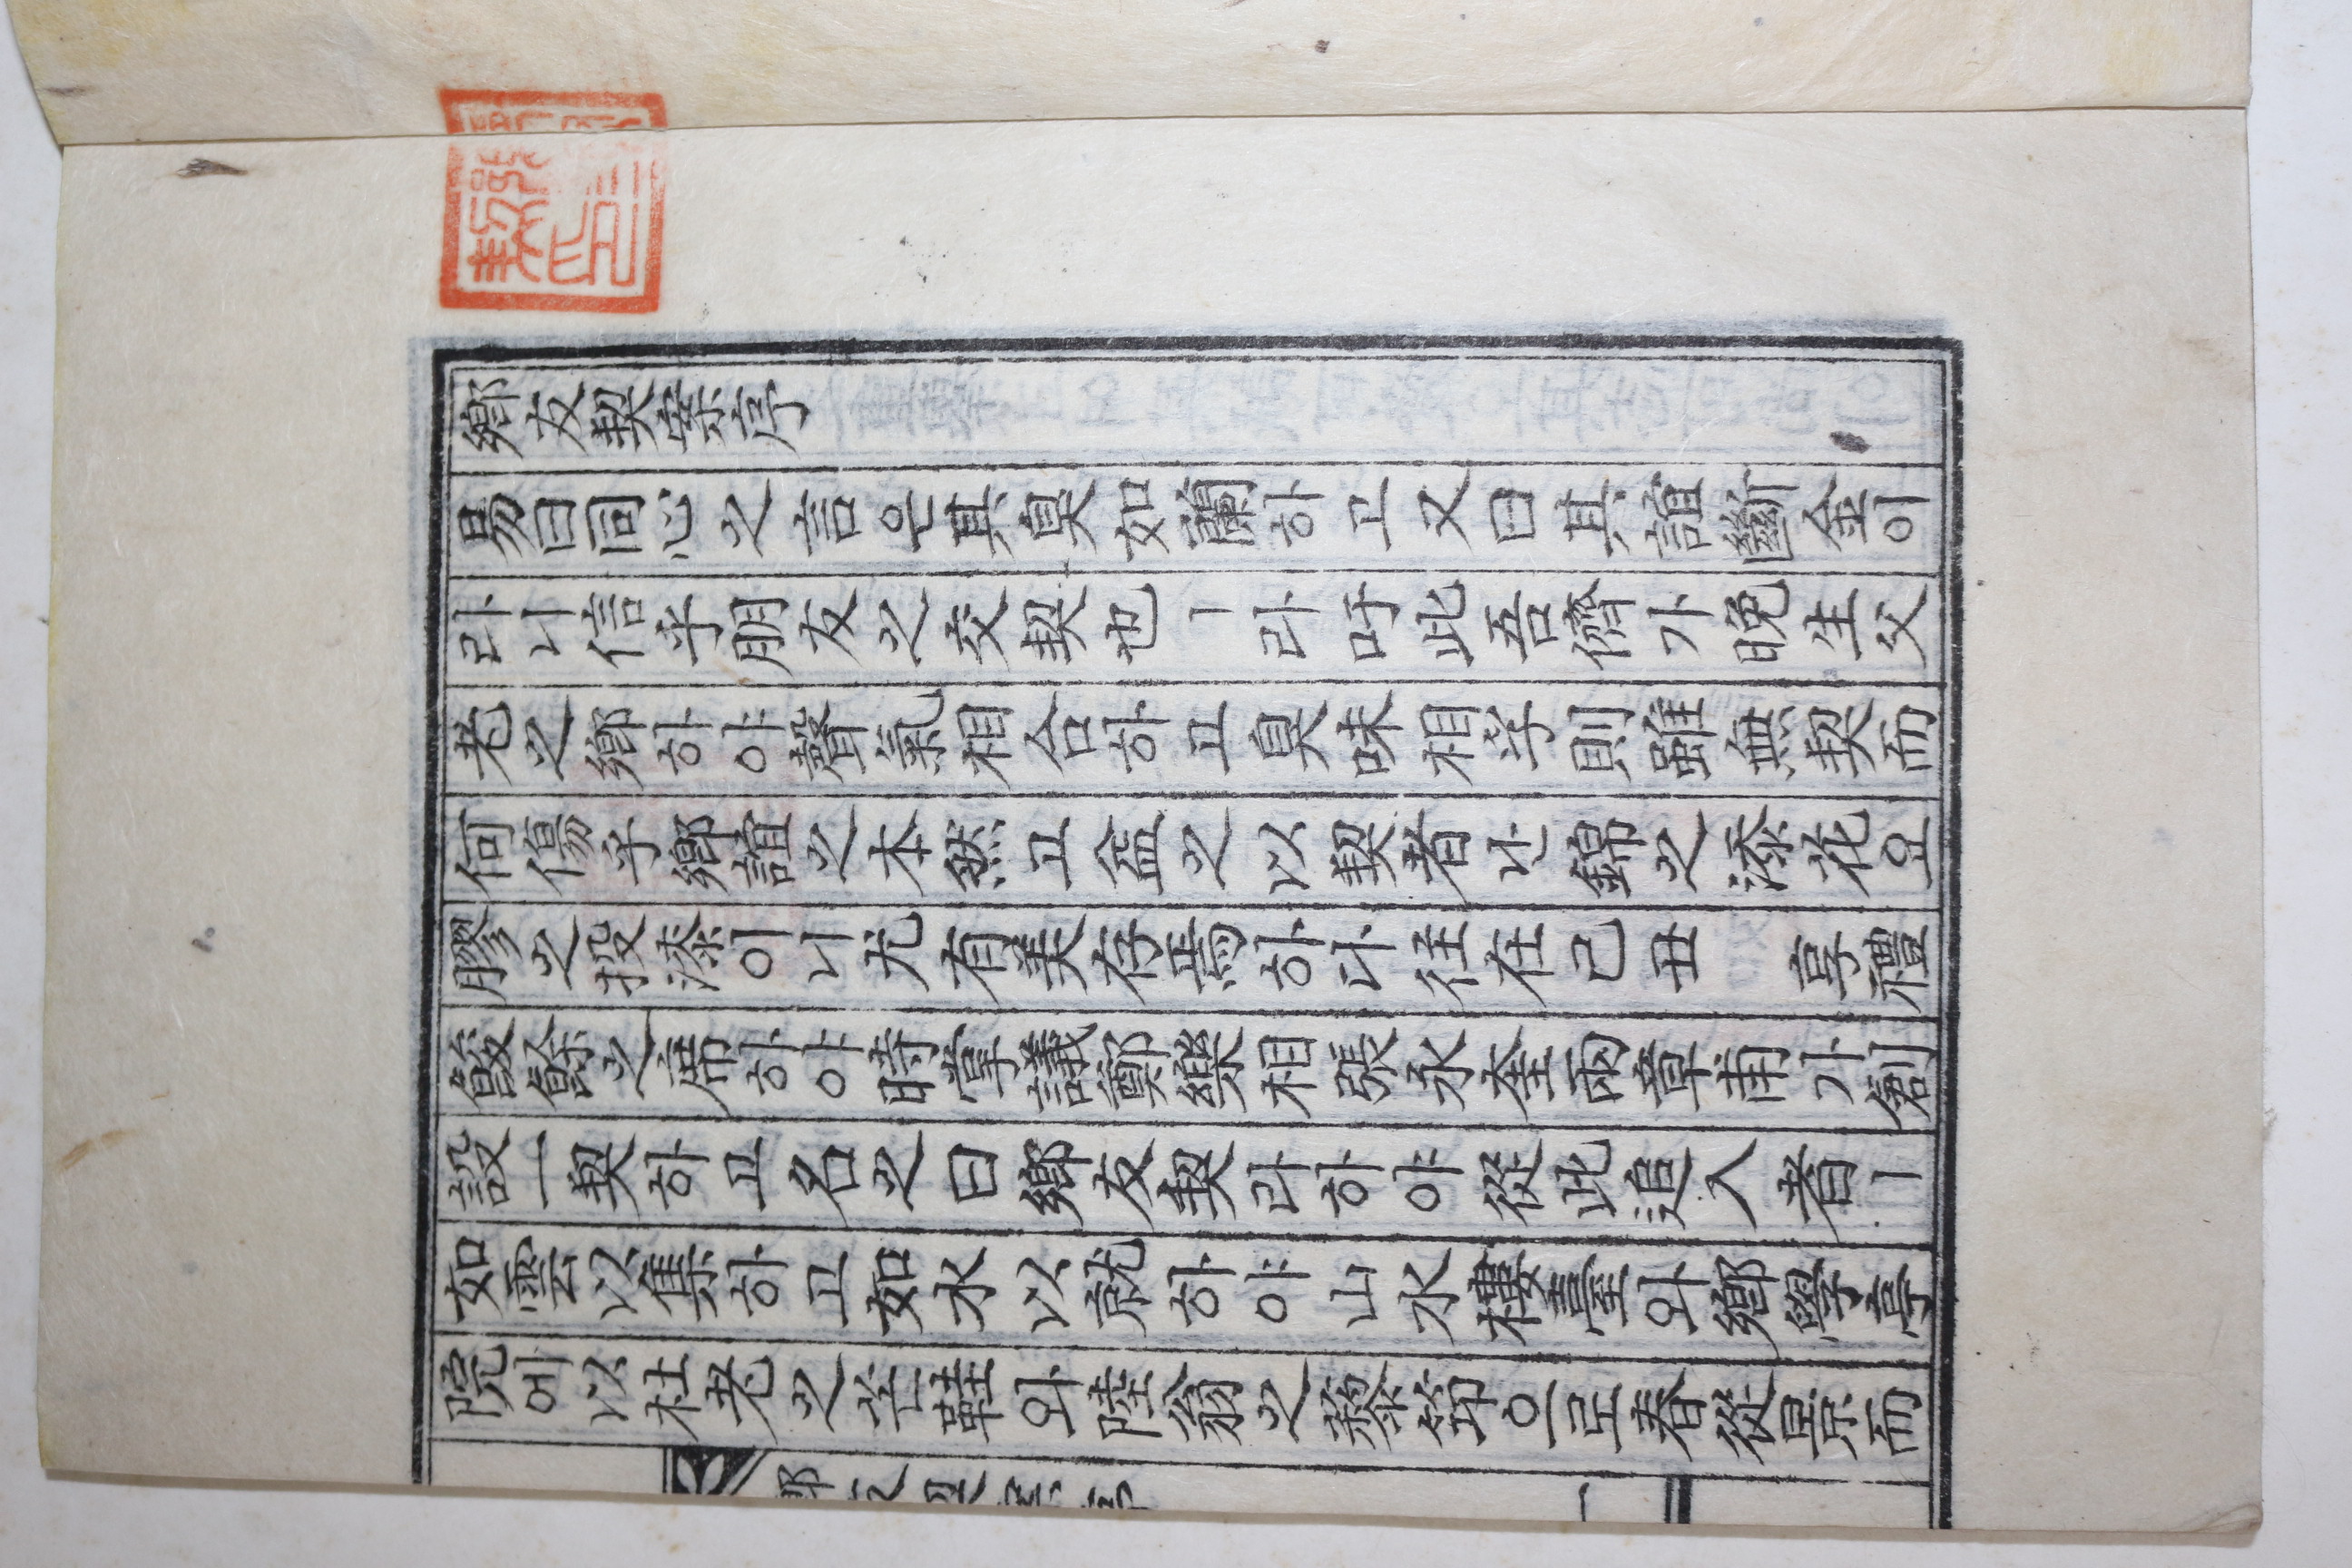 鄕友契案序
易曰同心之言은其臭如蘭하고又曰其誼斷金이
라니信乎朋友之交契也ㅣ라吁此吾儕가晩生父
老之鄕하야聲氣相合하고臭味相孚則雖無契而
何傷乎鄕誼之本然고益之以契者난錦之添花요
膠之投漆이니尤有美存焉하다徃在己丑 享禮
餕餘之席하야時掌議鄭樂相張永奎兩章甫가創
設一契하고名之曰鄕友契라하야從此追入者ㅣ
如雲以集하고如水以就하야山水樓臺와鄕學亭
院에以杜老之芒鞋와陸翁之藜笻으로春從景而
鄕友契案序
一